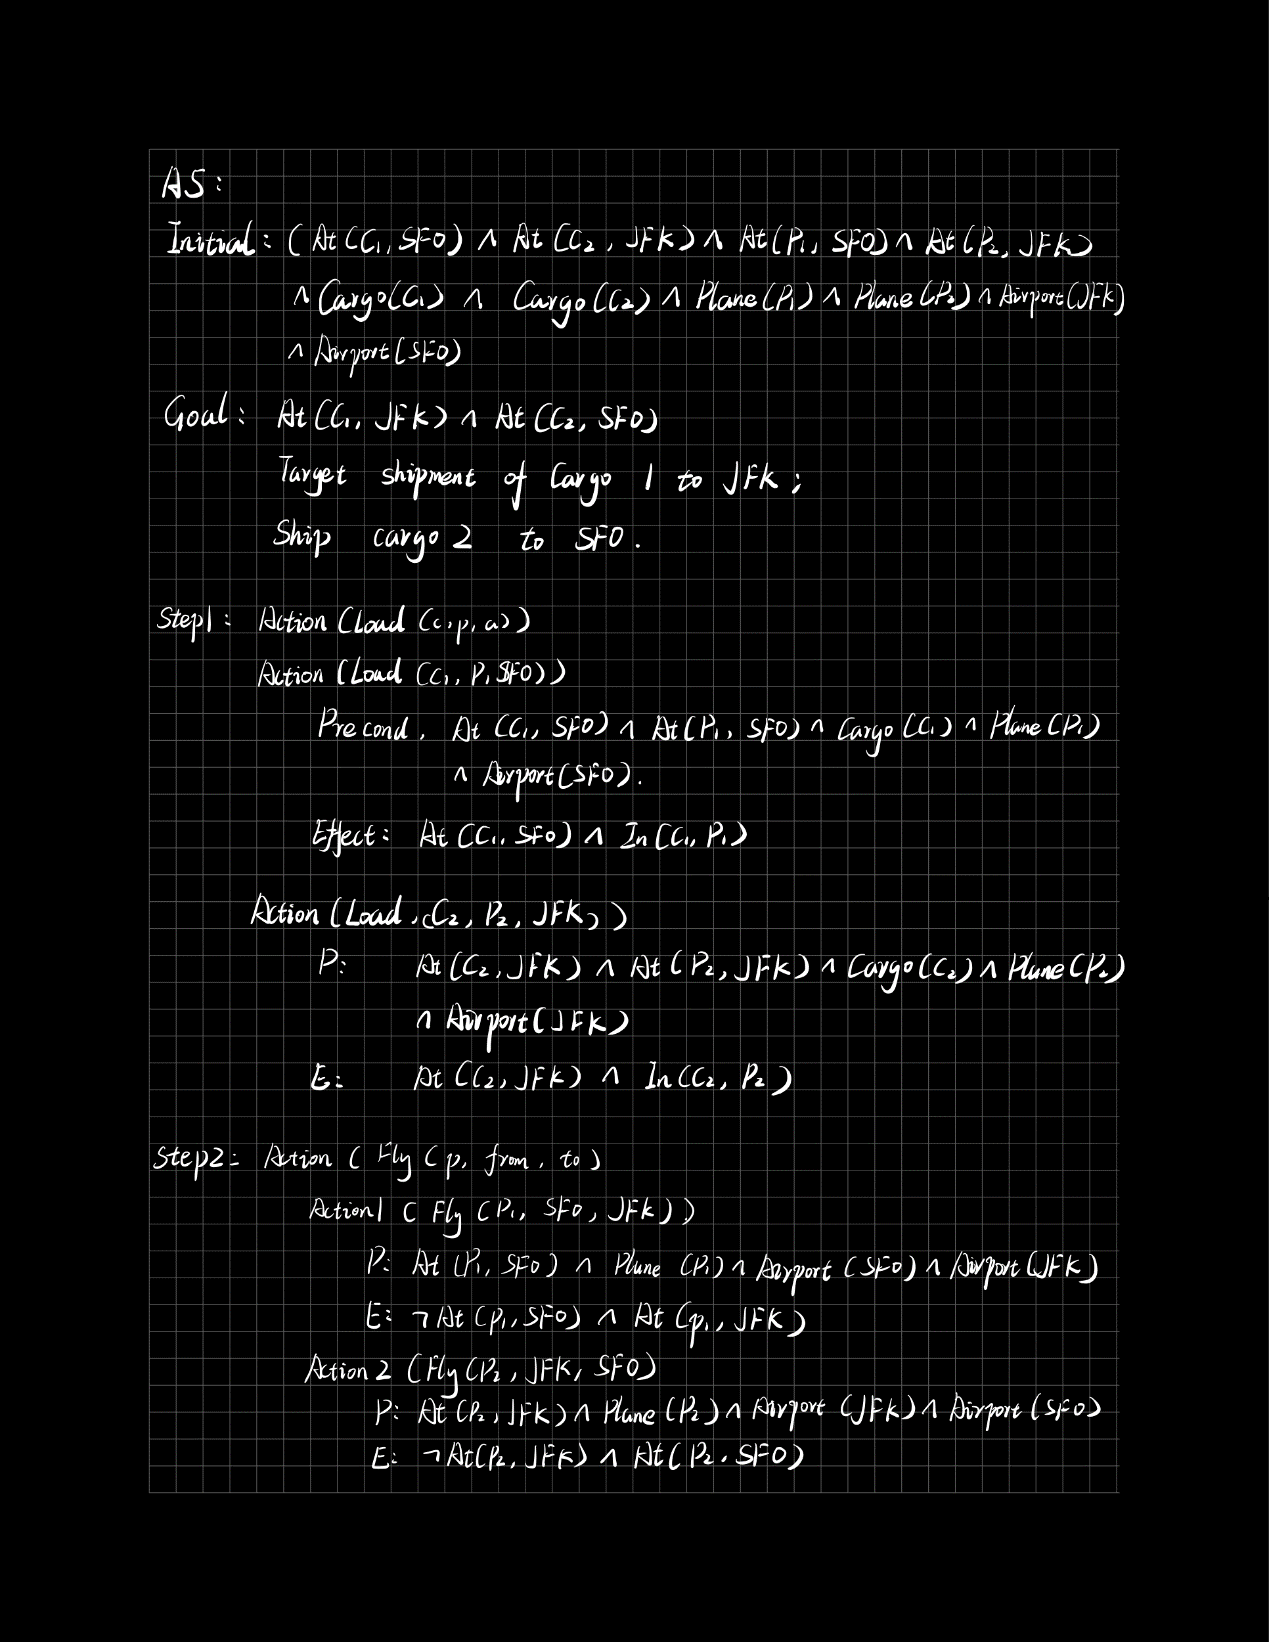 A5:
Initial: (At(C₁, SFO) ∧ At(C₂, JFK) ∧ At(P₁, SFO) ∧ At(P₂, JFK)
∧ Cargo(C₁) ∧ Cargo(C₂) ∧ Plane(P₁) ∧ Plane(P₂) ∧ Airport(JFK)
∧ Airport(SFO)
Goal: At(C₁, JFK) ∧ At(C₂, SFO)
Target shipment of Cargo 1 to JFK;
Ship cargo 2 to SFO.
Step1: Action (Load (c, p, a))
Action (Load (C₁, P₁ SFO))
Precond, At (C₁, SFO) ∧ At(P₁, SFO) ∧ Cargo(C₁) ∧ Plane(P₁)
∧ Airport(SFO).
Effect: At (C₁, SFO) ∧ In(C₁, P₁)
Action (Load, (C₂, P₂, JFK))
P: At(C₂, JFK) ∧ At(P₂, JFK) ∧ Cargo(C₂) ∧ Plane(P₂)
∧ Airport(JFK)
E: At(C₂, JFK) ∧ In(C₂, P₂)
Step2: Action ( Fly (p, from, to)
Action1 ( Fly (P₁, SFO, JFK))
P: At (P₁, SFO) ∧ Plane (P₁) ∧ Airport (SFO) ∧ Airport(JFK)
E: ¬At(p₁, SFO) ∧ At(p₁, JFK)
Action 2 (Fly(P₂, JFK, SFO)
P: At(P₂, JFK) ∧ Plane(P₂) ∧ Airport (JFK) ∧ Airport(SFO)
E: ¬At(P₂, JFK) ∧ At(P₂, SFO)